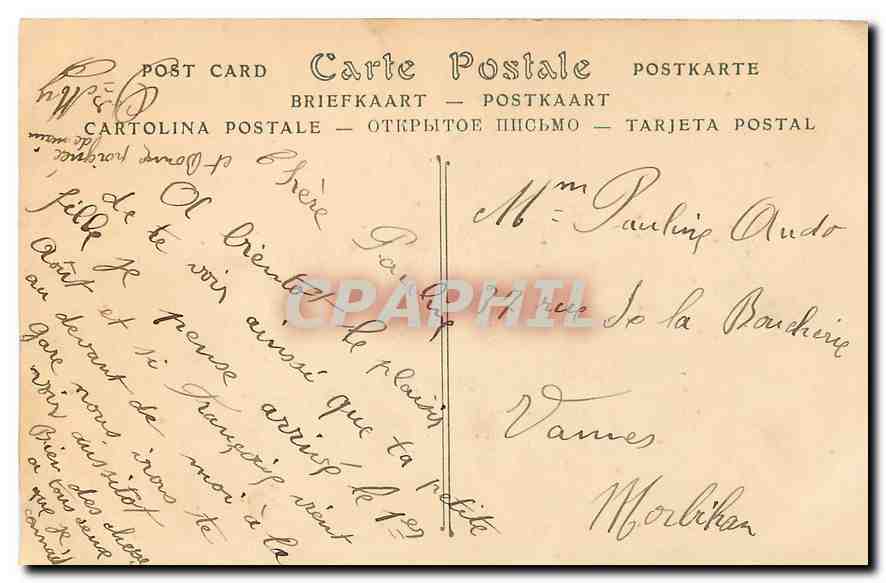 POST CARD Carte Postale POSTKARTE
BRIEFKAART — POSTKAART
CARTOLINA POSTALE — ОТКРЫТОЕ ПИСЬМО — TARJETA POSTAL
Chère Pauline
A bientot le plaisir
de te voir ainssi que ta petite
fille je pense arrivé le 1er
Août et si Françoise vient
au devant de moi à la
gare nous irons te
voir aussitot
Bien des choses
a tous ceux
que je
connais
et bonne poignée
de main
Mme Pauline Audo
37 rue de la Boucherie
Vannes
Morbihan
CPAPHIL